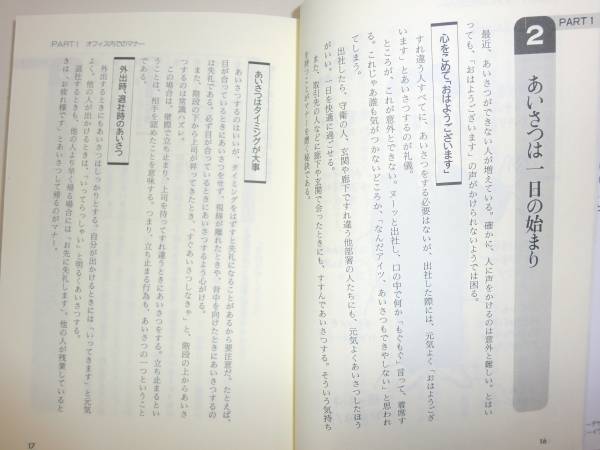 PART 1
2
あいさつは一日の始まり
最近、あいさつができない人が増えている。確かに、人に声をかけるのは意外と難しい。とはい
っても、「おはようございます」の声がかけられないようでは困る。
心をこめて、「おはようございます」
すれ違う人すべてに、あいさつをする必要はないが、出社した際には、元気よく「おはようござ
います」とあいさつするのが礼儀。
ところが、これが意外とできない。ヌーッと出社し、口の中で何か「もぐもぐ」言って、着席す
る。これじゃあ誰も気がつかないどころか、「なんだアイツ、あいさつもできやしない」と思われ
出社したら、守衛の人、玄関や廊下ですれ違う他部署の人たちにも、元気よくあいさつしたほう
がいい。一日を快適に過ごせる。
また、取引先の人などに廊下や玄関で会ったときにも、すすんであいさつする。そういう気持ち
を持つことがマナーを磨く秘訣である。
16
PART 1 オフィス内でのマナー
あいさつはタイミングが大事
あいさつするのはいいが、タイミングをはずすと失礼になることがあるから要注意だ。たとえば、
目が合っているときにあいさつをせず、視線が離れたときや、背中を向けたときにあいさつするの
は失礼である。必ず目が合っているときにあいさつするよう心がける。
また、階段の下から上司が昇ってきたとき、「すぐあいさつしなきゃ」と、階段の上からあいさ
つするのは常識ハズレ。
この場合は、壁際で立ち止まり、上司を待ってすれ違うときにあいさつをする。立ち止まるとい
うことは、相手を認めることを意味する。つまり、立ち止まる行為も、あいさつの一つということ
である。
外出時、退社時のあいさつ
外出するときにもあいさつはしっかりとする。自分が出かけるときには「いってきます」と元気
よく、他の人が出かけるときは、「いってらっしゃい」と明るくあいさつする。
退社するときも、他の人より早く帰る場合には「お先に失礼します」、他の人が残業していると
きは、「お疲れ様です」とあいさつして帰るのがマナー。
17